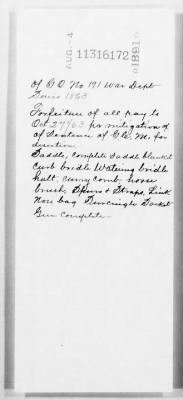 AUG. 4
11316172
1891
of G O No 191 War Dept
Series 1863
Forfeiture of all pay to
Oct 27/63 for mitigation of
of Sentence of G.C.M. for
desertion.
Saddle, complete Saddle blanket
curb bridle Watering bridle
halt. curry comb horse
brush, Spurs & Straps, Link
Nose bag Surcingle Socket
Gun Complete.